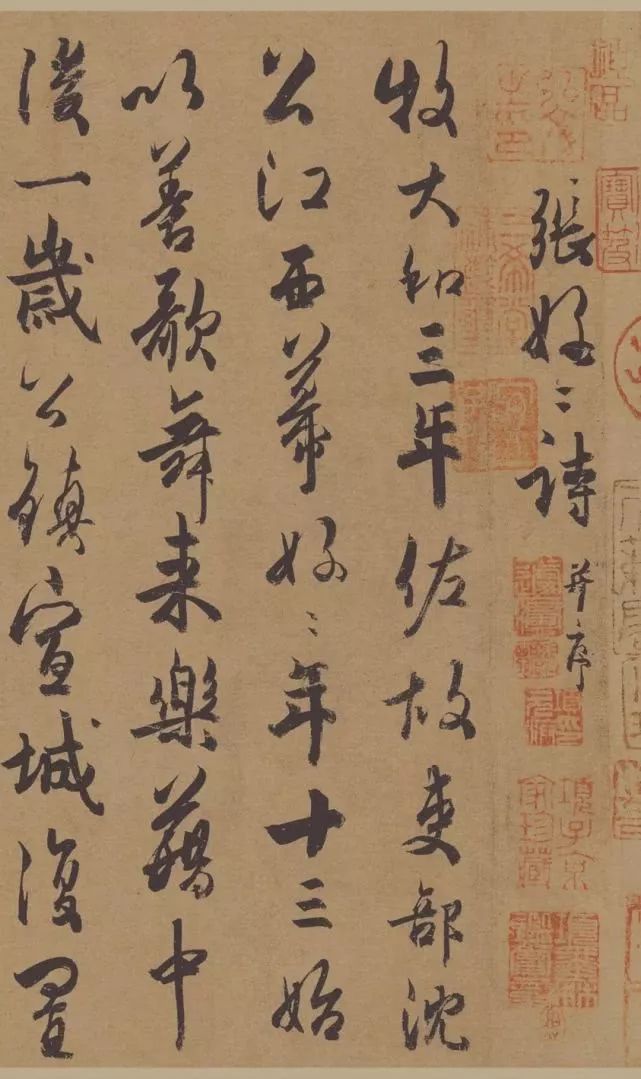 張好〻詩 并序
牧大和三年佐故吏部沈
公江西幕好〻年十三始
以善歌舞来樂籍中
後一歲公鎮宣城復置
項子京家珍藏